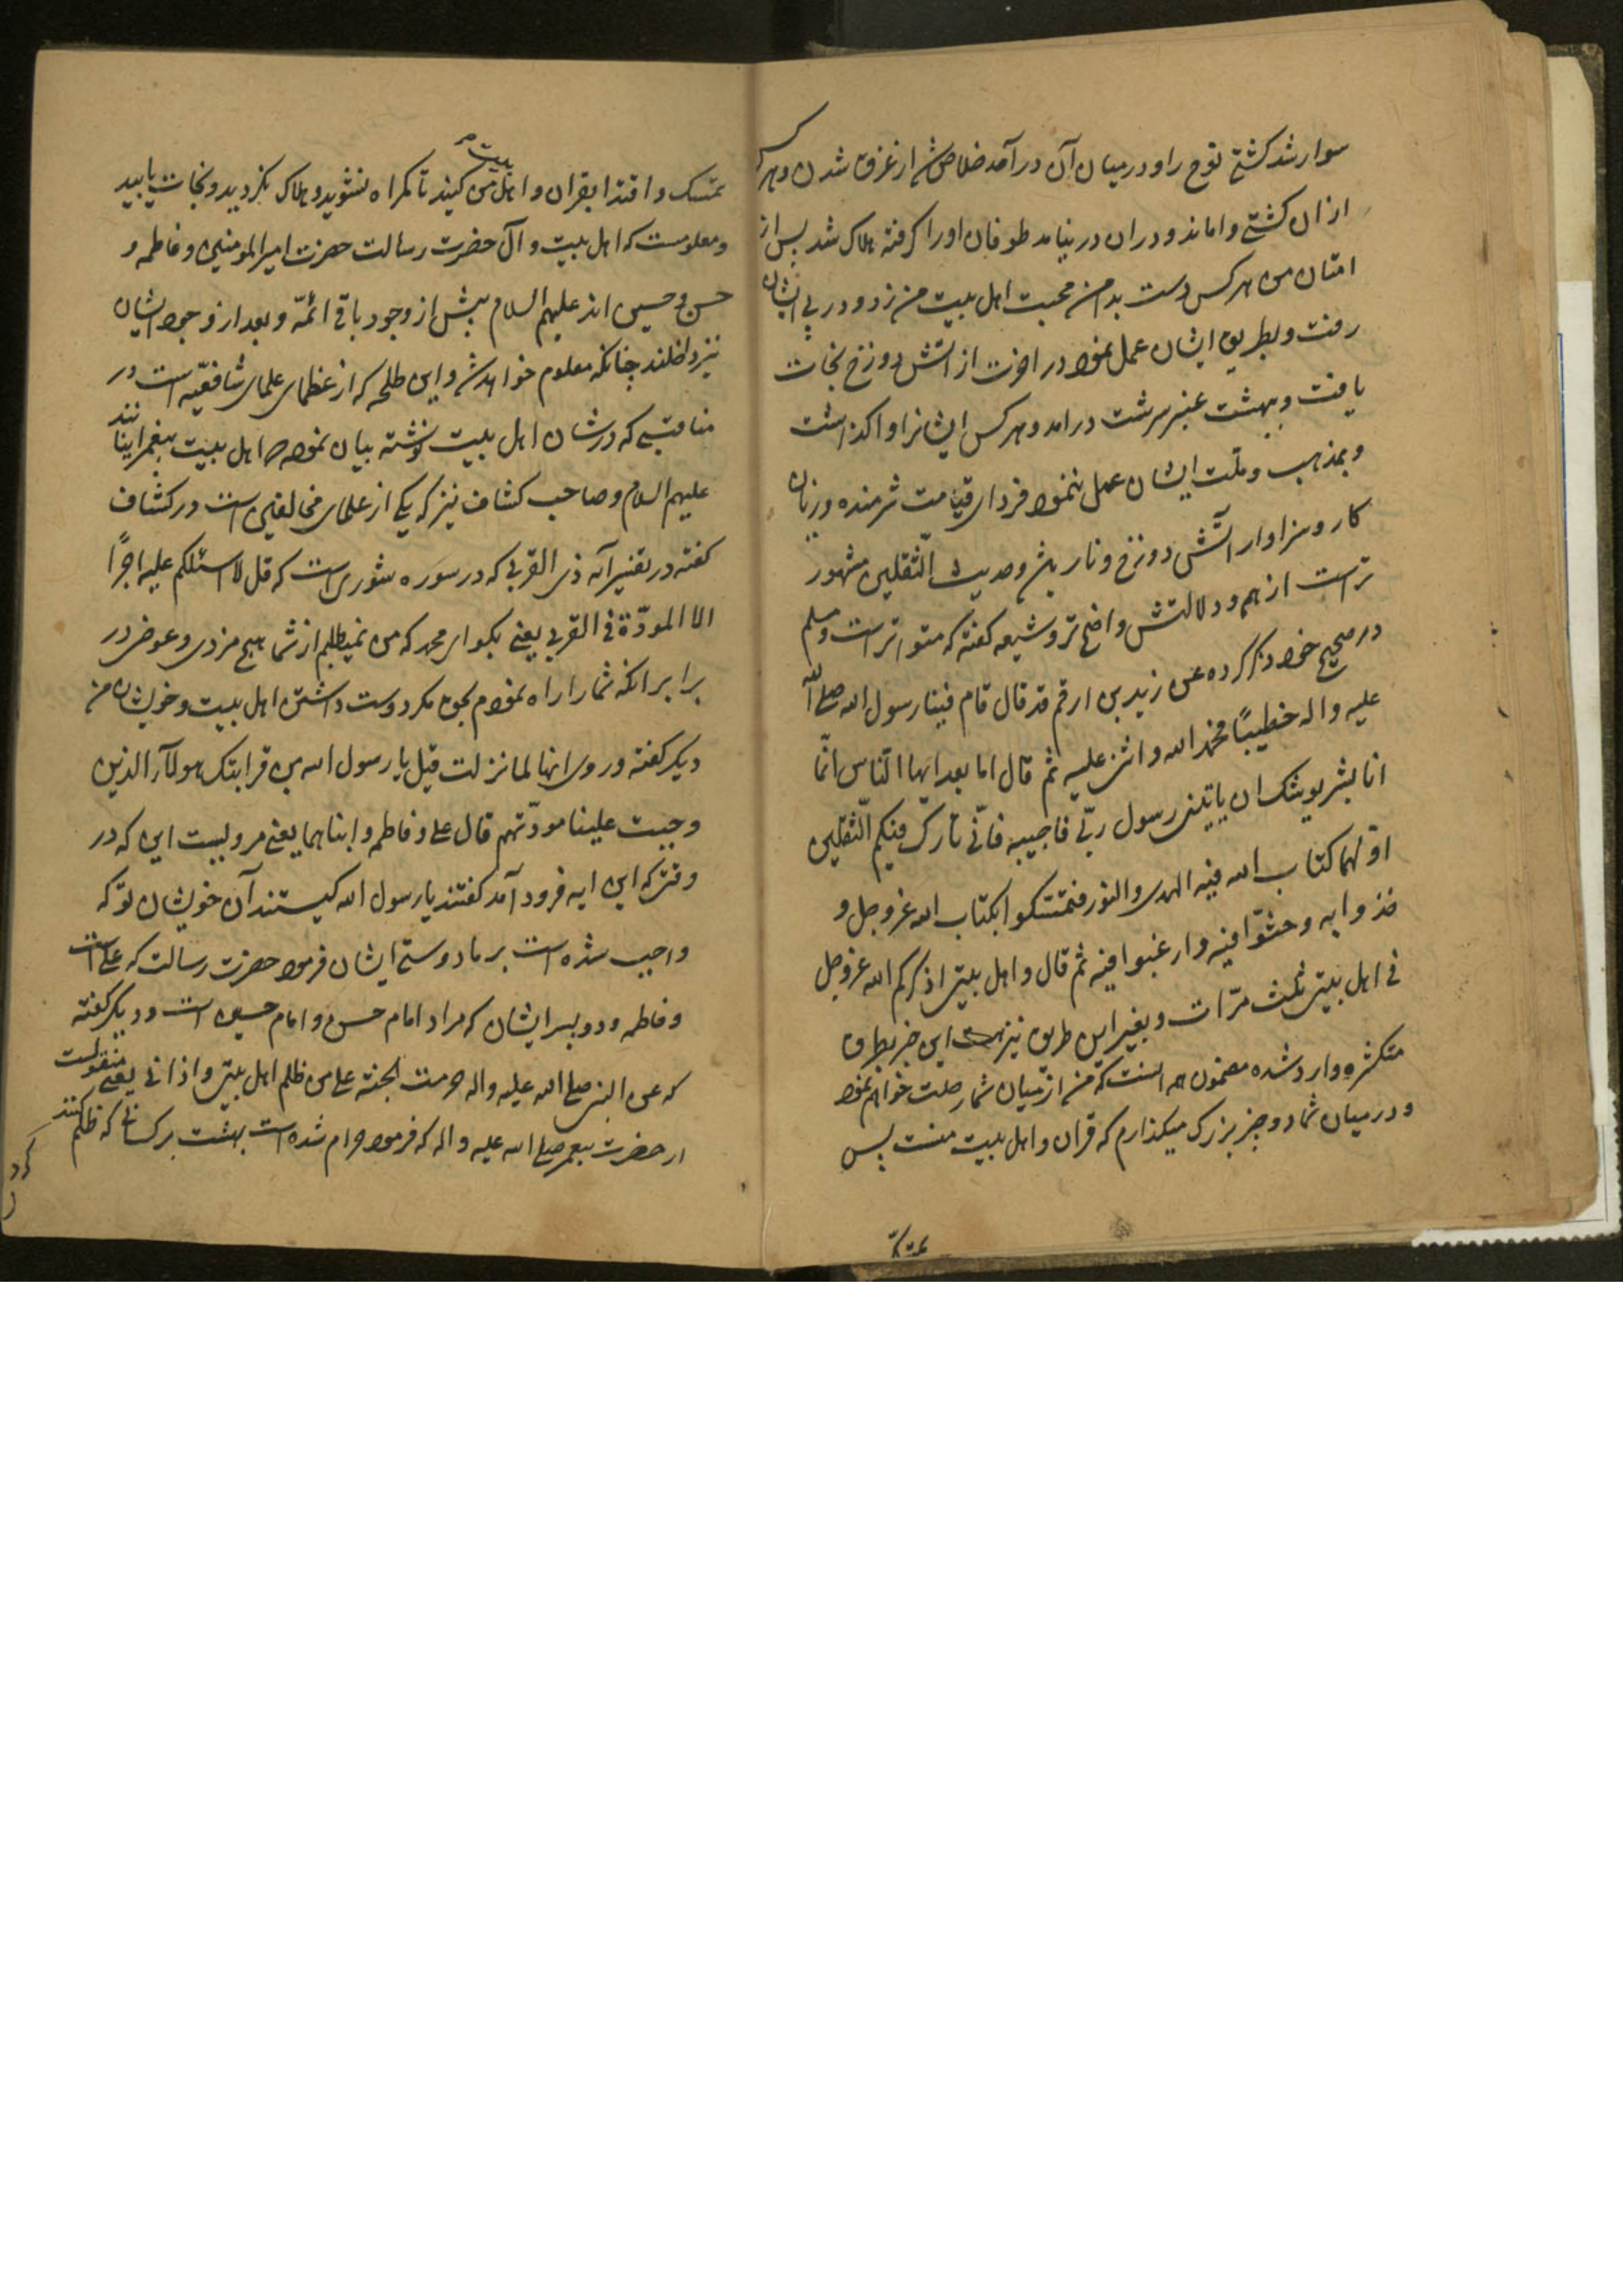 سوار شد کشتی نوح را و در میان آن درآمد خلاص شد از غرق شدن و هرکه
از ان کشتی واماند و در ان در نیامد طوفان او را کرفته هلاک شد پس از
امتان من هر کس دست بدامن محبت اهل بیت من زد و در پی ایشان
رفت و بطریق ایشان عمل نمود در اخرت از اتش دوزخ نجات
یافت و ببهشت عنبر سرشت در امد و هر کس ایشانرا واکذاشت
و بمذهب و ملت ایشان عمل ننمود فردای قیامت شرمنده و زیان
کار و سزاوار آتش دوزخ و نار شد و حدیث الثقلین مشهور
تر است از همه و دلالتش واضح تر و شیعه کفته که متواتر است و مسلم
در صحیح خود ذکر کرده عن زید بن ارقم قد قال قام فینا رسول الله صلی الله
علیه و اله خطیبًا فحمد الله و اثنی علیه ثم قال اما بعد ایها الناس انّما
انا بشر یوشک ان یاتینی رسول ربّی فاجیبه فانّی تارک فیکم الثّقلین
اوّلهما کتاب الله فیه الهدی و النور فتمسّکوا بکتاب الله عز و جل و
خذوا به و حثّوا فیه و ارغبوا فیه ثم قال و اهل بیتی اذکرکم الله عز و جل
فی اهل بیتی ثلث مرّات و بغیر این طریق نیز این خبر بطرق
متکثره وارد شده مضمون همه انست که من از میان شما رحلت خواهم نمود
و در میان شما دو چیز بزرک میکذارم که قران و اهل بیت منست پس
تمسک
تمسک و اقتدا بقران و اهل بیت من کنید تا کمراه نشوید و هلاک نکردید و نجات یابید
و معلومست که اهل بیت و آل حضرت رسالت حضرت امیر المومنین و فاطمه و
حسن و حسین اند علیهم السلام پیش از وجود باقی ائمّه و بعد از وجود ایشان
نیز داخلند چنانکه معلوم خواهد شد و ابن طلحه که از عظمای علمای شافعیّه است در
مناقبی که در شان اهل بیت نوشته بیان نموده که اهل بیت پیغمبر اینانند
علیهم السلام و صاحب کشاف نیز که یکی از علمای مخالفین است در کشاف
کفته در تفسیر آیه ذی القربی که در سوره شوری است که قل لا اسئلکم علیه اجرًا
الا المودّة فی القربی یعنی بکو ای محمد که من نمیطلبم از شما هیچ مزدی و عوض در
برابر انکه شما را راه نمودم بحق مکر دوست داشتن اهل بیت و خویشان من
دیکر کفته و روی انها لما نزلت قیل یا رسول الله من قرابتک هولآء الذین
وجبت علینا مودّتهم قال علی و فاطمه و ابناهما یعنی مرویست این که در
وقتی که این ایه فرود آمد کفتند یا رسول الله کیستند آن خویشان تو که
واجب شده است بر ما دوستی ایشان فرمود حضرت رسالت که علی است
و فاطمه و دو پسر ایشان که مراد امام حسن و امام حسین است و دیکر کفته
که عن النبی صلی الله علیه و اله حرمت الجنة علی من ظلم اهل بیتی و اذانی یعنی منقولست
از حضرت پیغمبر صلی الله علیه و اله که فرمود حرام شده است بهشت بر کسانی که ظلم کنند